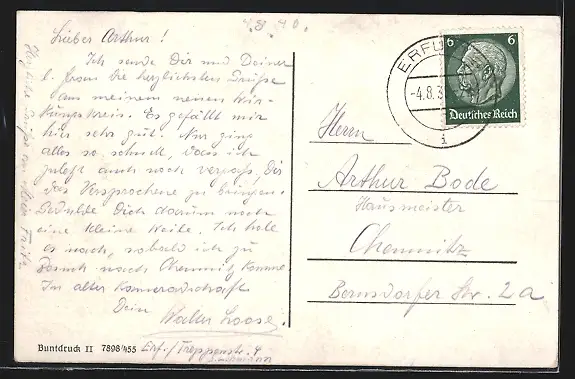 4.8.40.
Lieber Arthur!
Ich sende Dir und Deiner
l. Frau die herzlichsten Grüße
aus meinem neuen Wir-
kungskreis. Es gefällt mir
hier sehr gut. Nur ging
alles so schnell, dass ich
zuletzt auch noch vergaß, Dir
das Versprochene zu bringen.
Gedulde Dich darum noch
eine kleine Weile. Ich hole
es nach, sobald ich zu
Besuch nach Chemnitz komme
In alter Kameradschaft
Dein
Walter Loose
Erf./ Treppenstr. 4
Buntdruck II 7898/455
ERFU
-4.8.3
i
6 6
Deutsches Reich
Herrn
Arthur Bode
Hausmeister
Chemnitz
Bernsdorfer Str. 2a